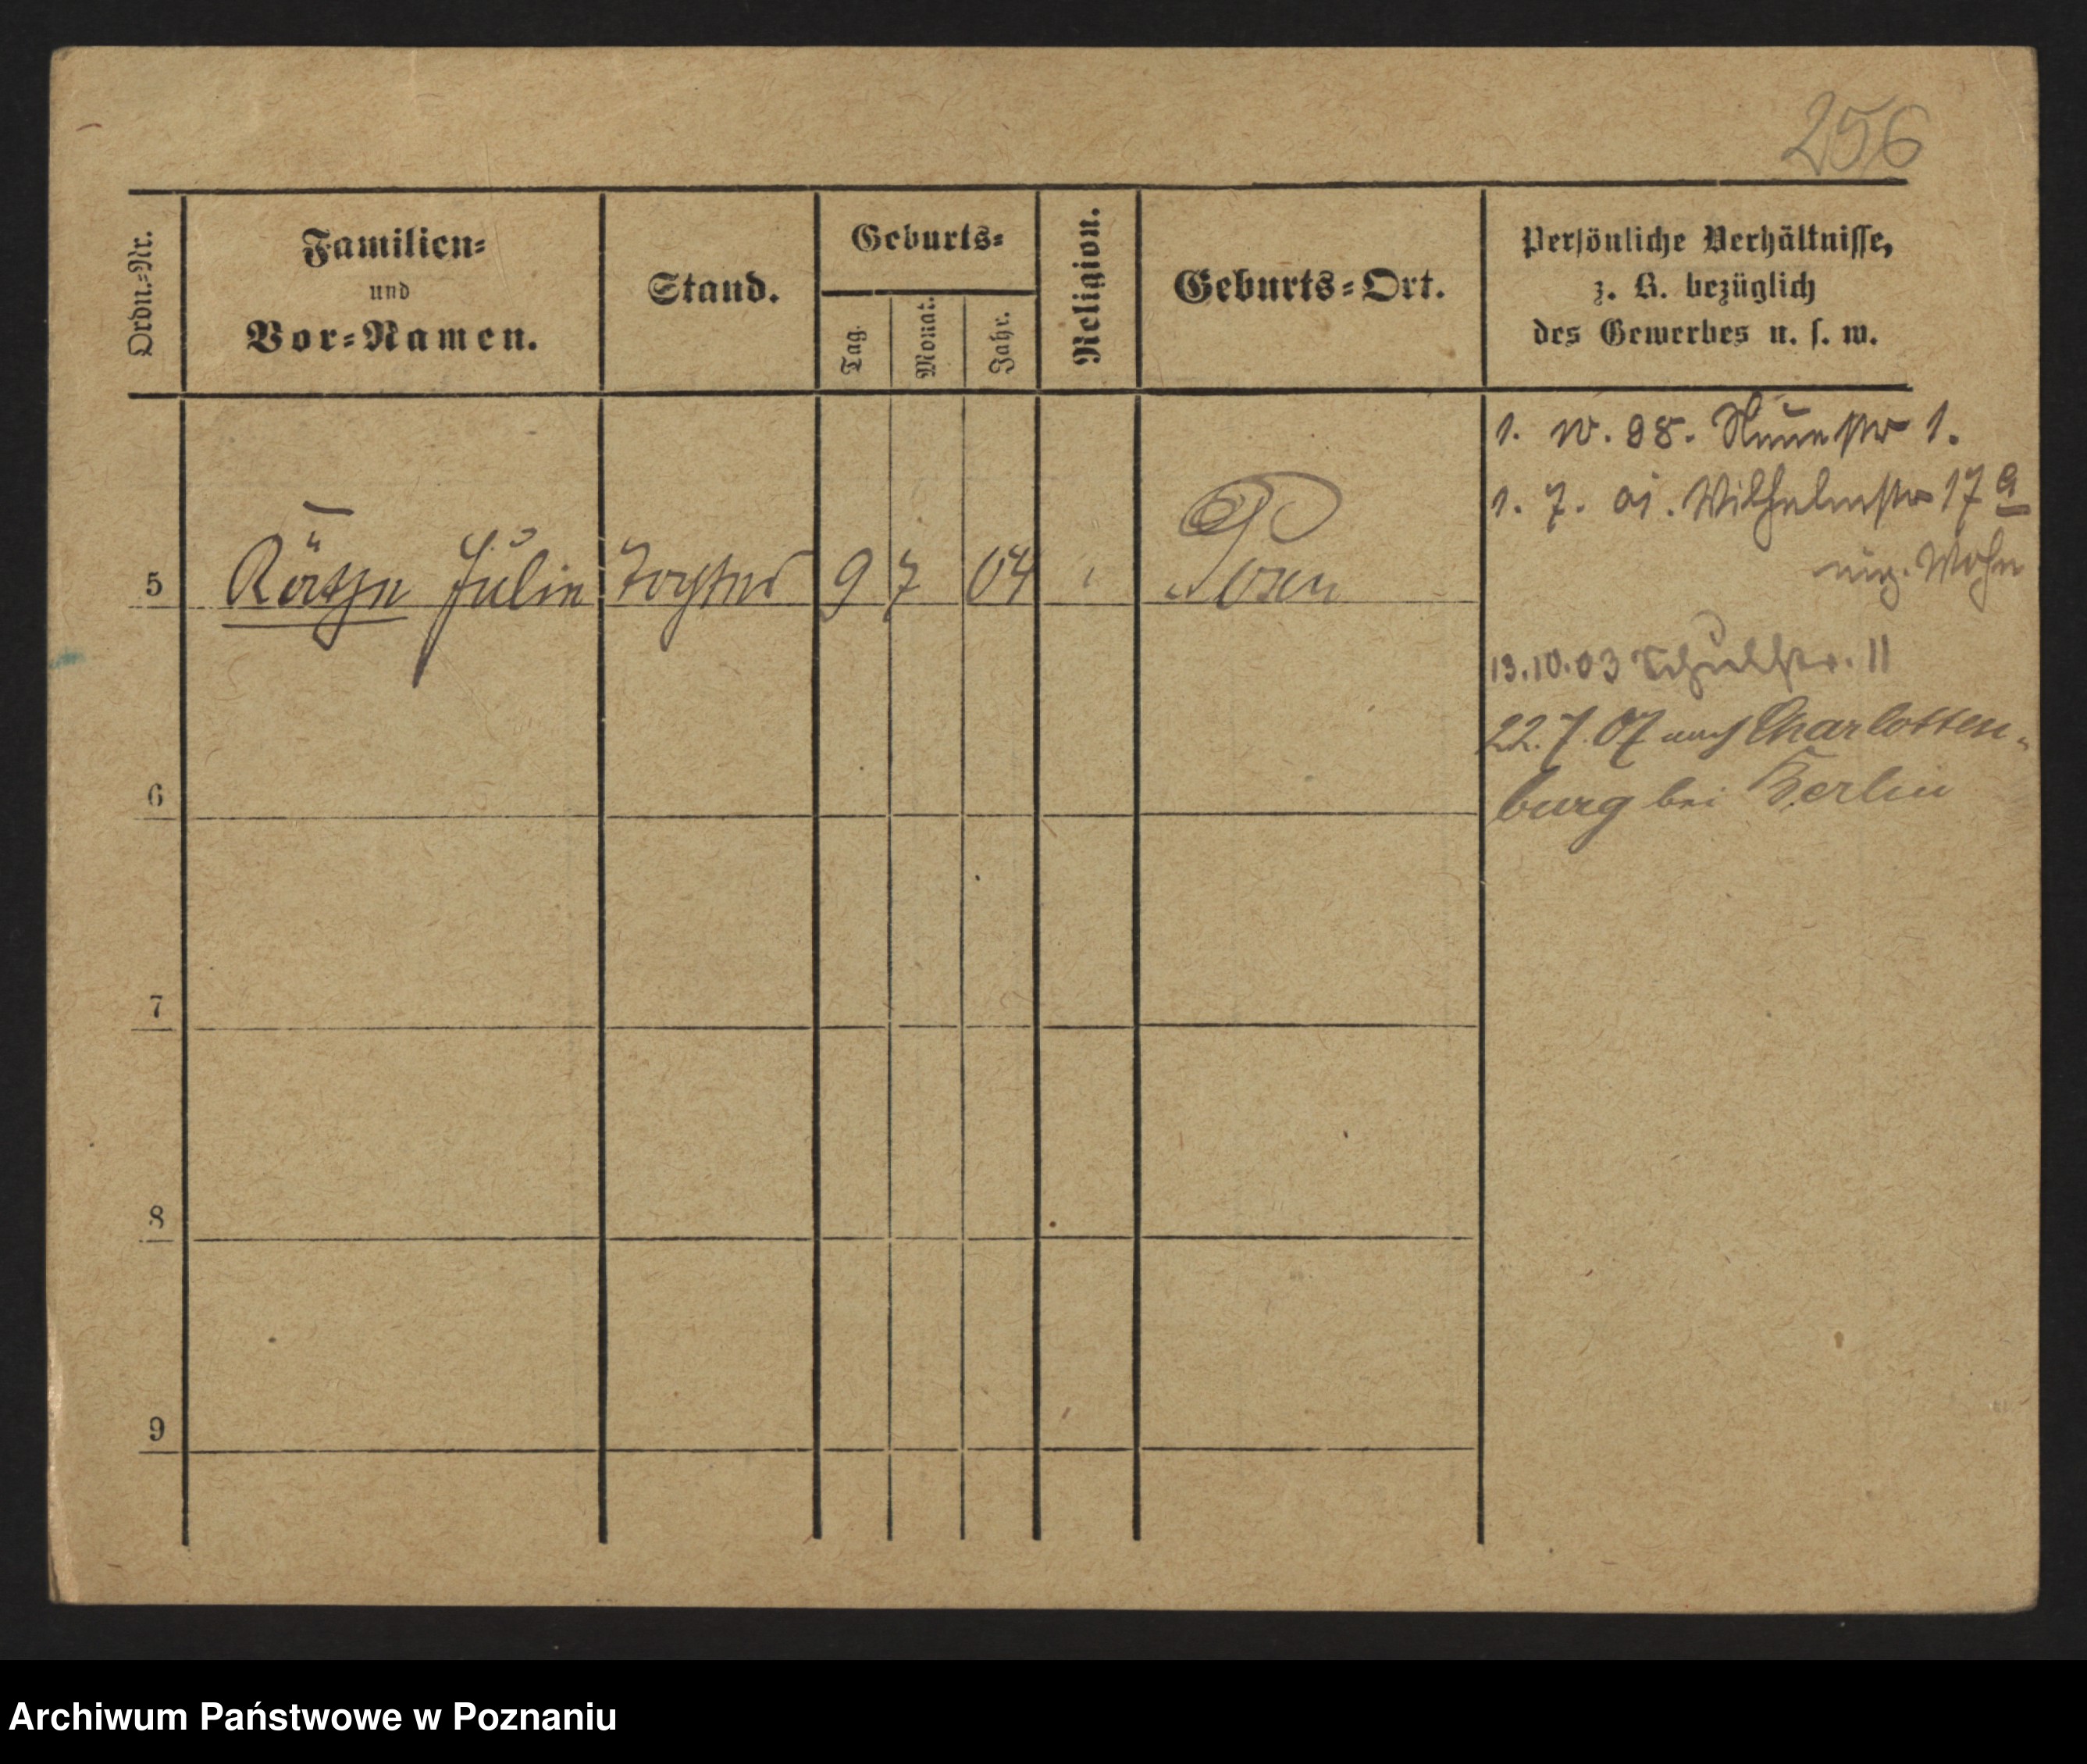 256
Ordn.-Nr.
Familien-
und
Vor-Namen.
Stand.
Geburts-
Tag.
Monat.
Jahr.
Religion.
Geburts-Ort.
Persönliche Verhältnisse,
z. B. bezüglich
des Gewerbes u. s. w.
1. 10. 98. Neuestr 1.
1. 7. 01. Wilhelmstr 17 a
Wohn
5 Käthe Julie Tochter 9 7 04 Posen
13.10.03 Schulstr. 11
22.7.07 nach Charlotten-
burg bei Berlin
6
7
8
9
Archiwum Państwowe w Poznaniu